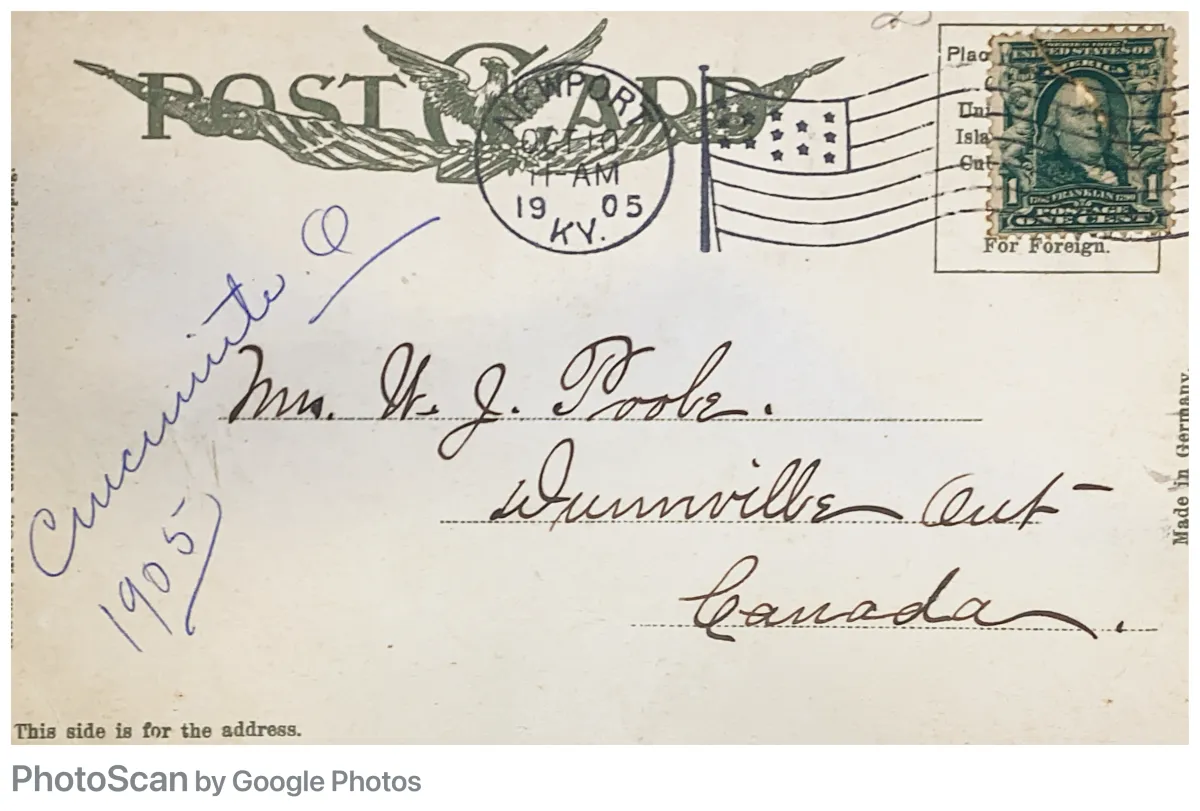 POST CARD
NEWPORT
OCT 10
11-AM
1905
KY.
Plac
Uni
Isla
For Foreign.
SERIES 1902
UNITED STATES OF
AMERICA
1 FRANKLIN 1
POSTAGE
ONE CENT
O
1905
Mrs. W. J.
Dunnville Ont
Canada.
Made in Germany.
This side is for the address.
PhotoScan by Google Photos